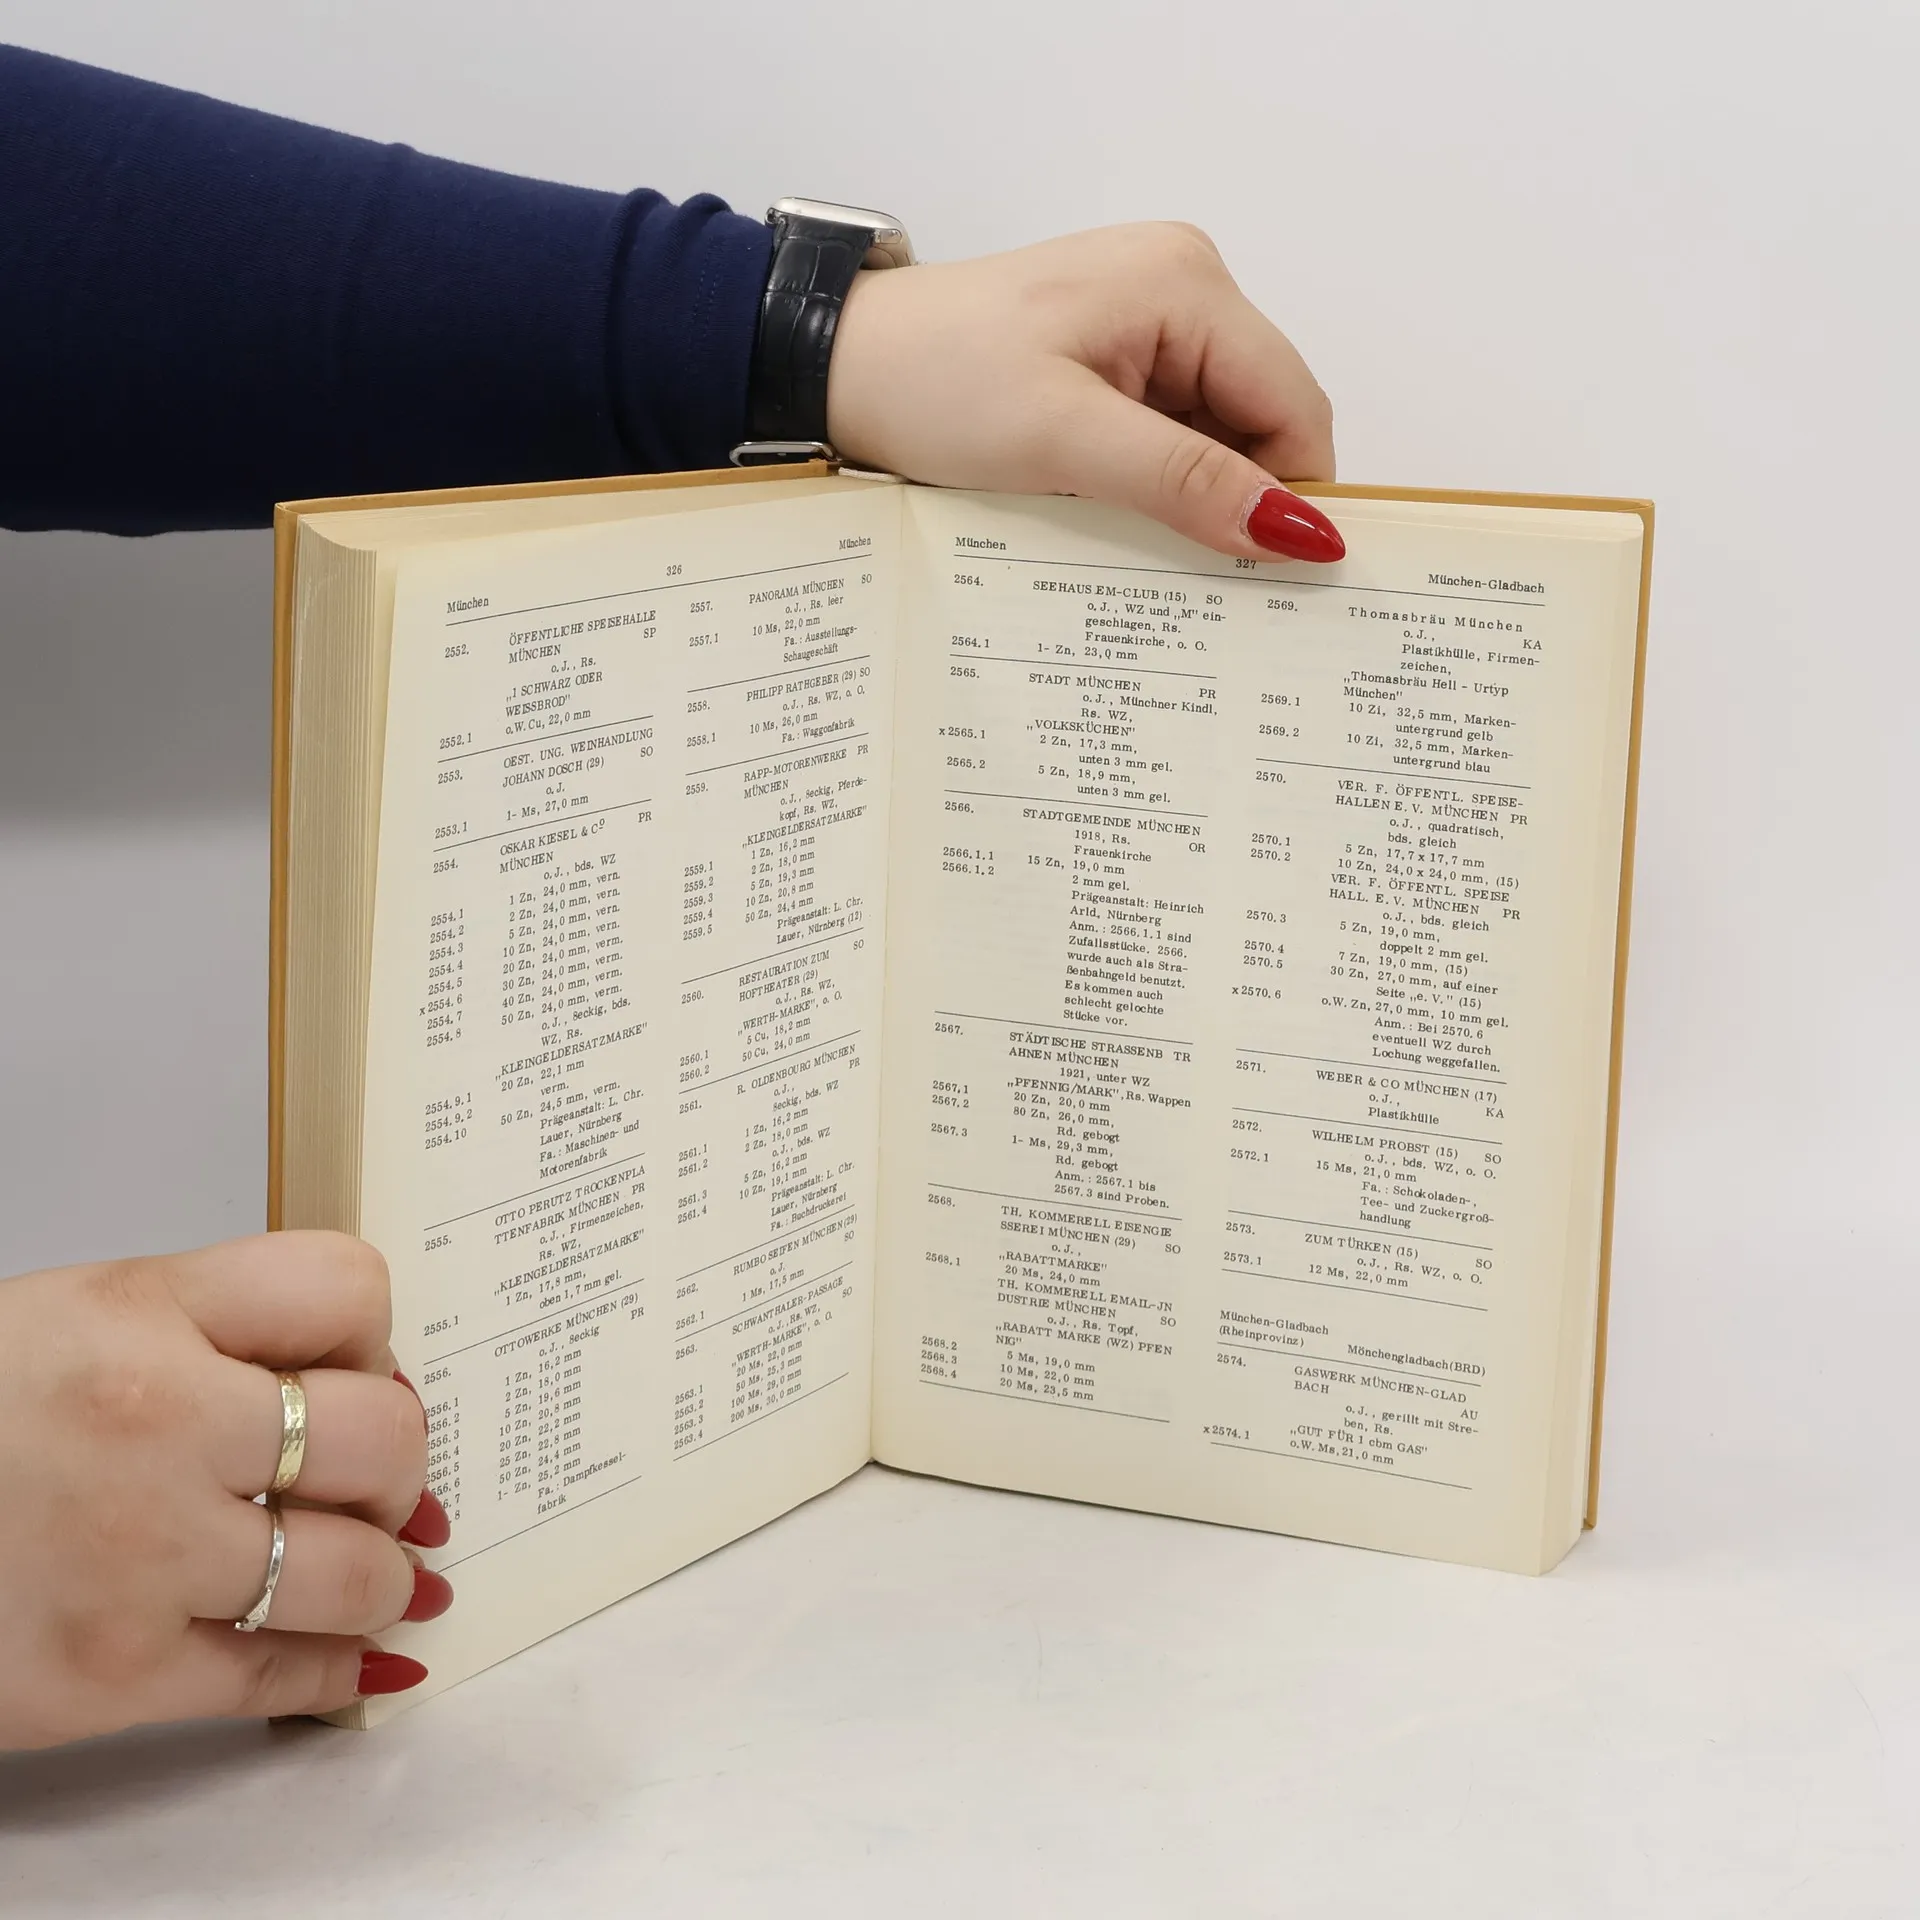 München
326
München
2552.
ÖFFENTLICHE SPEISEHALLE
MÜNCHEN SP
o. J. , Rs.
„1 SCHWARZ ODER
WEISSBROD"
2552.1 o.W. Cu, 22,0 mm
2553. OEST. UNG. WEINHANDLUNG
JOHANN DOSCH (29) SO
o. J.
2553.1 1- Ms, 27,0 mm
2554. OSKAR KIESEL & Cº PR
MÜNCHEN
o. J. , bds. WZ
2554.1 1 Zn, 24,0 mm, vern.
2554.2 2 Zn, 24,0 mm, vern.
2554.3 5 Zn, 24,0 mm, vern.
2554.4 10 Zn, 24,0 mm, vern.
2554.5 20 Zn, 24,0 mm, verm.
x 2554.6 30 Zn, 24,0 mm, verm.
2554.7 40 Zn, 24,0 mm, verm.
2554.8 50 Zn, 24,0 mm, verm.
o. J. , 8eckig, bds.
WZ, Rs.
„KLEINGELDERSATZMARKE"
2554.9.1 20 Zn, 22,1 mm
2554.9.2 verm.
2554.10 50 Zn, 24,5 mm, verm.
Prägeanstalt: L. Chr.
Lauer, Nürnberg
Fa. : Maschinen- und
Motorenfabrik
2555. OTTO PERUTZ TROCKENPLA
TTENFABRIK MÜNCHEN PR
o. J. , Firmenzeichen,
Rs. WZ,
„KLEINGELDERSATZMARKE"
2555.1 1 Zn, 17,8 mm,
oben 1,7 mm gel.
2556. OTTOWERKE MÜNCHEN (29)
o. J. , 8eckig PR
2556.1 1 Zn, 16,2 mm
2556.2 2 Zn, 18,0 mm
2556.3 5 Zn, 19,6 mm
2556.4 10 Zn, 20,8 mm
2556.5 20 Zn, 22,2 mm
556.6 25 Zn, 22,8 mm
6.7 50 Zn, 24,4 mm
.8 1- Zn, 25,2 mm
Fa. : Dampfkessel-
fabrik
2557. PANORAMA MÜNCHEN SO
o. J. , Rs. leer
2557.1 10 Ms, 22,0 mm
Fa. : Ausstellungs-
Schaugeschäft
2558. PHILIPP RATHGEBER (29) SO
o. J. , Rs. WZ, o. O.
2558.1 10 Ms, 26,0 mm
Fa. : Waggonfabrik
2559. RAPP-MOTORENWERKE PR
MÜNCHEN
o. J. , 8eckig, Pferde-
kopf, Rs. WZ,
„KLEINGELDERSATZMARKE"
2559.1 1 Zn, 16,2 mm
2559.2 2 Zn, 18,0 mm
2559.3 5 Zn, 19,3 mm
2559.4 10 Zn, 20,8 mm
2559.5 50 Zn, 24,4 mm
Prägeanstalt: L. Chr.
Lauer, Nürnberg (12)
2560. RESTAURATION ZUM SO
HOFTHEATER (29)
o. J. , Rs. WZ,
„WERTH-MARKE", o. O.
2560.1 5 Cu, 18,2 mm
2560.2 50 Cu, 24,0 mm
2561. R. OLDENBOURG MÜNCHEN
o. J. , PR
8eckig, bds. WZ
2561.1 1 Zn, 16,2 mm
2561.2 2 Zn, 18,0 mm
o. J. , bds. WZ
2561.3 5 Zn, 16,2 mm
2561.4 10 Zn, 19,1 mm
Prägeanstalt: L. Chr.
Lauer, Nürnberg
Fa. : Buchdruckerei
2562. RUMBO SEIFEN MÜNCHEN (29)
o. J. SO
2562.1 1 Ms, 17,5 mm
2563. SCHWANTHALER-PASSAGE
o. J. , Rs. WZ, SO
„WERTH-MARKE", o. O.
2563.1 20 Ms, 22,0 mm
2563.2 50 Ms, 25,3 mm
2563.3 100 Ms, 29,0 mm
2563.4 200 Ms, 30,0 mm
München
327
München-Gladbach
2564. SEEHAUS EM-CLUB (15) SO
o. J. , WZ und „M" ein-
geschlagen, Rs.
Frauenkirche, o. O.
2564.1 1- Zn, 23,0 mm
2565. STADT MÜNCHEN PR
o. J. , Münchner Kindl,
Rs. WZ,
„VOLKSKÜCHEN"
x 2565.1 2 Zn, 17,3 mm,
unten 3 mm gel.
2565.2 5 Zn, 18,9 mm,
unten 3 mm gel.
2566. STADTGEMEINDE MÜNCHEN
1918, Rs. OR
Frauenkirche
2566.1.1 15 Zn, 19,0 mm
2566.1.2 2 mm gel.
Prägeanstalt: Heinrich
Arld, Nürnberg
Anm. : 2566.1.1 sind
Zufallsstücke. 2566.
wurde auch als Stra-
ßenbahngeld benutzt.
Es kommen auch
schlecht gelochte
Stücke vor.
2567. STÄDTISCHE STRASSENB TR
AHNEN MÜNCHEN
1921, unter WZ
„PFENNIG/MARK", Rs. Wappen
2567.1 20 Zn, 20,0 mm
2567.2 80 Zn, 26,0 mm,
Rd. gebogt
2567.3 1- Ms, 29,3 mm,
Rd. gebogt
Anm. : 2567.1 bis
2567.3 sind Proben.
2568. TH. KOMMERELL EISENGIE
SSEREI MÜNCHEN (29) SO
o. J. ,
„RABATTMARKE"
2568.1 20 Ms, 24,0 mm
TH. KOMMERELL EMAIL-JN
DUSTRIE MÜNCHEN SO
o. J. , Rs. Topf,
„RABATT MARKE (WZ) PFEN
NIG"
2568.2 5 Ms, 19,0 mm
2568.3 10 Ms, 22,0 mm
2568.4 20 Ms, 23,5 mm
2569. Thomasbräu München
o. J. , KA
Plastikhülle, Firmen-
zeichen,
„Thomasbräu Hell - Urtyp
München"
2569.1 10 Zi, 32,5 mm, Marken-
untergrund gelb
2569.2 10 Zi, 32,5 mm, Marken-
untergrund blau
2570. VER. F. ÖFFENTL. SPEISE-
HALLEN E. V. MÜNCHEN PR
o. J. , quadratisch,
bds. gleich
2570.1 5 Zn, 17,7 x 17,7 mm
2570.2 10 Zn, 24,0 x 24,0 mm, (15)
VER. F. ÖFFENTL. SPEISE
HALL. E. V. MÜNCHEN PR
o. J. , bds. gleich
2570.3 5 Zn, 19,0 mm,
doppelt 2 mm gel.
2570.4 7 Zn, 19,0 mm, (15)
2570.5 30 Zn, 27,0 mm, auf einer
Seite „e. V. " (15)
x 2570.6 o.W. Zn, 27,0 mm, 10 mm gel.
Anm. : Bei 2570.6
eventuell WZ durch
Lochung weggefallen.
2571. WEBER & CO MÜNCHEN (17)
o. J. , KA
Plastikhülle
2572. WILHELM PROBST (15) SO
o. J. , bds. WZ, o. O.
2572.1 15 Ms, 21,0 mm
Fa. : Schokoladen-,
Tee- und Zuckergroß-
handlung
2573. ZUM TÜRKEN (15) SO
o. J. , Rs. WZ, o. O.
2573.1 12 Ms, 22,0 mm
München-Gladbach
(Rheinprovinz) Mönchengladbach(BRD)
2574. GASWERK MÜNCHEN-GLAD
BACH AU
o. J. , gerillt mit Stre-
ben, Rs.
„GUT FÜR 1 cbm GAS"
x 2574.1 o.W. Ms, 21,0 mm